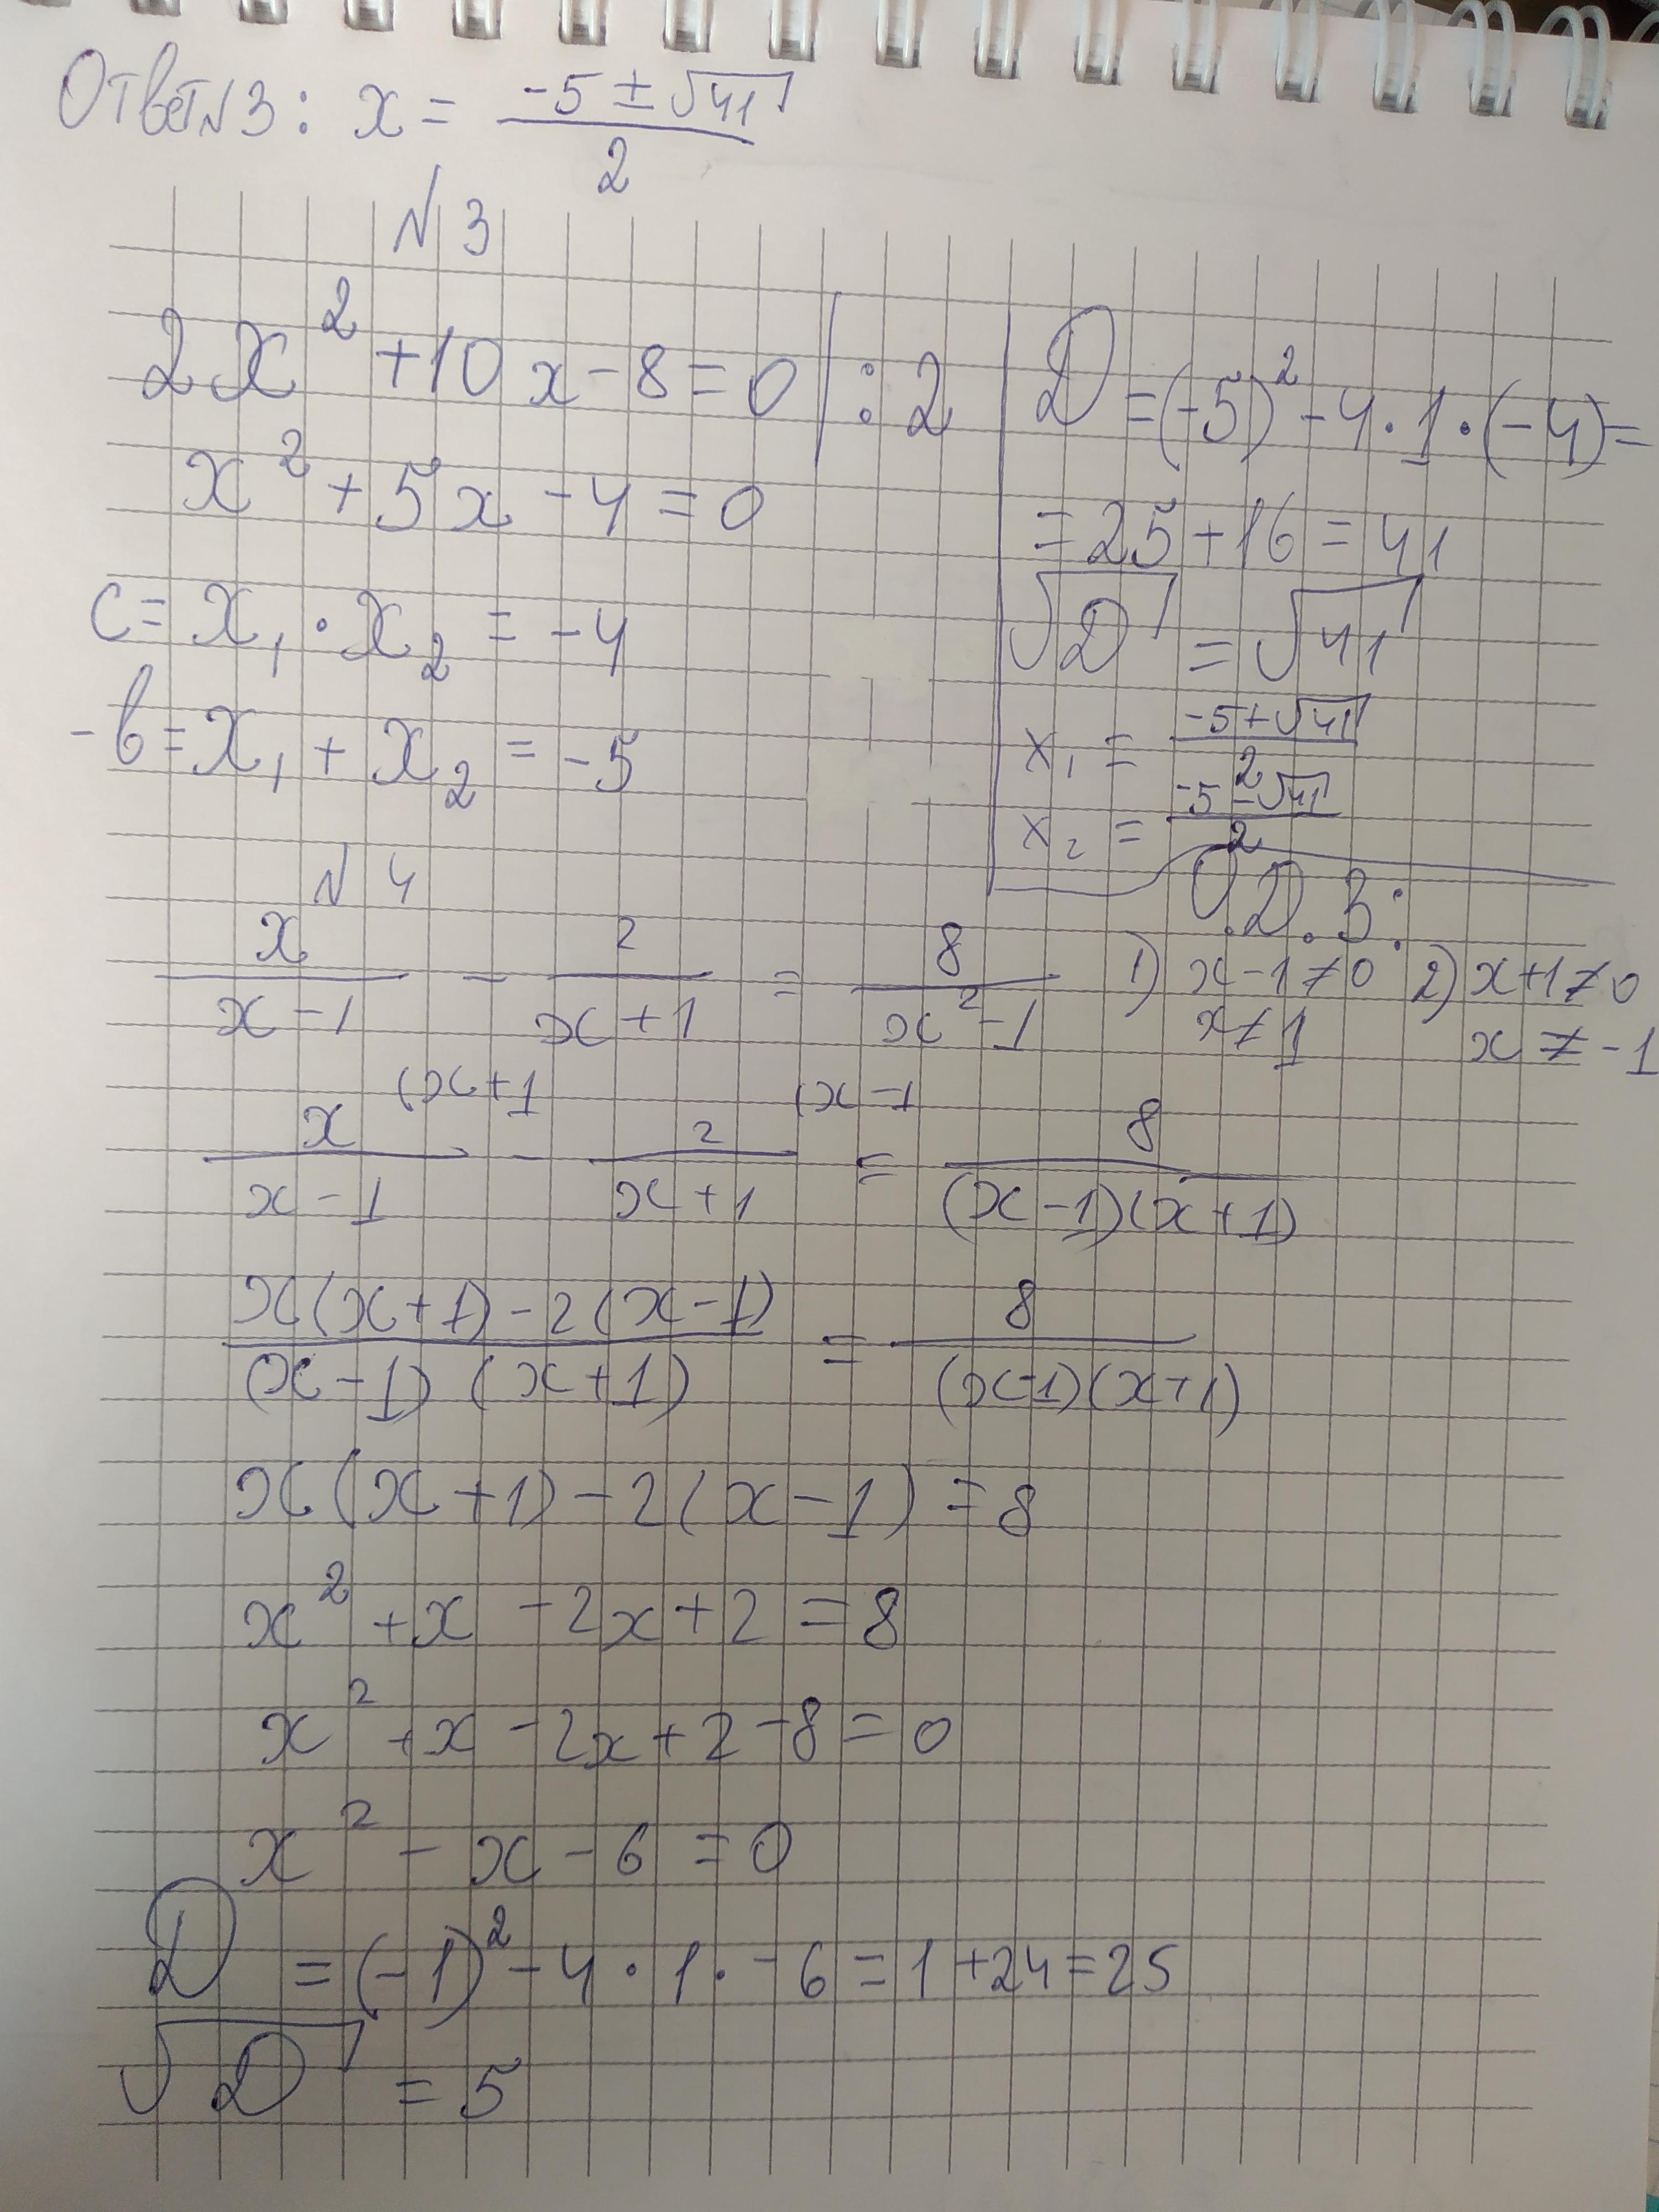 Ответ№3: x = (-5 ± √41)/2
№ 3
2x² + 10x - 8 = 0 | : 2
x² + 5x - 4 = 0
c = x₁ · x₂ = -4
-b = x₁ + x₂ = -5
D = (-5)² - 4 · 1 · (-4) =
= 25 + 16 = 41
√D = √41
x₁ = (-5 + √41)/2
x₂ = (-5 - √41)/2
№ 4
x/(x - 1) - 2/(x + 1) = 8/(x² - 1)
О.Д.З.:
1) x - 1 ≠ 0 2) x + 1 ≠ 0
x ≠ 1 x ≠ -1
x/(x - 1) (x + 1 - 2/(x + 1) (x - 1 = 8/((x - 1)(x + 1))
(x(x + 1) - 2(x - 1))/((x - 1)(x + 1)) = 8/((x - 1)(x + 1))
x(x + 1) - 2(x - 1) = 8
x² + x - 2x + 2 = 8
x² + x - 2x + 2 - 8 = 0
x² - x - 6 = 0
D = (-1)² - 4 · 1 · -6 = 1 + 24 = 25
√D = 5